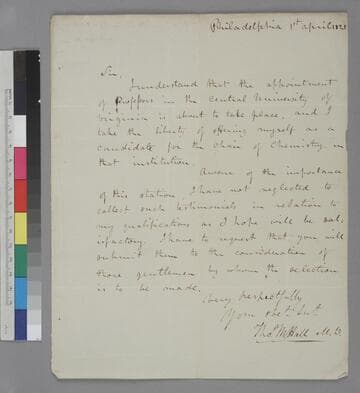 Philadelphia 1st april
Sir,
I understand that the appointment
of Professors in the central University of
Virginia is about to take place, and I
take the liberty of offering myself as a
candidate for the chair of Chemistry in
that institution.
Aware of the importance
of this station I have not neglected to
collect such testimonials in relation to
my qualifications as I hope will be sat,
isfactory. I have to request that you will
submit them to the consideration of
those gentlemen by whom the selection
is to be made.
Very respectfully
Your obet. Svt.
Thos. Hall M.D